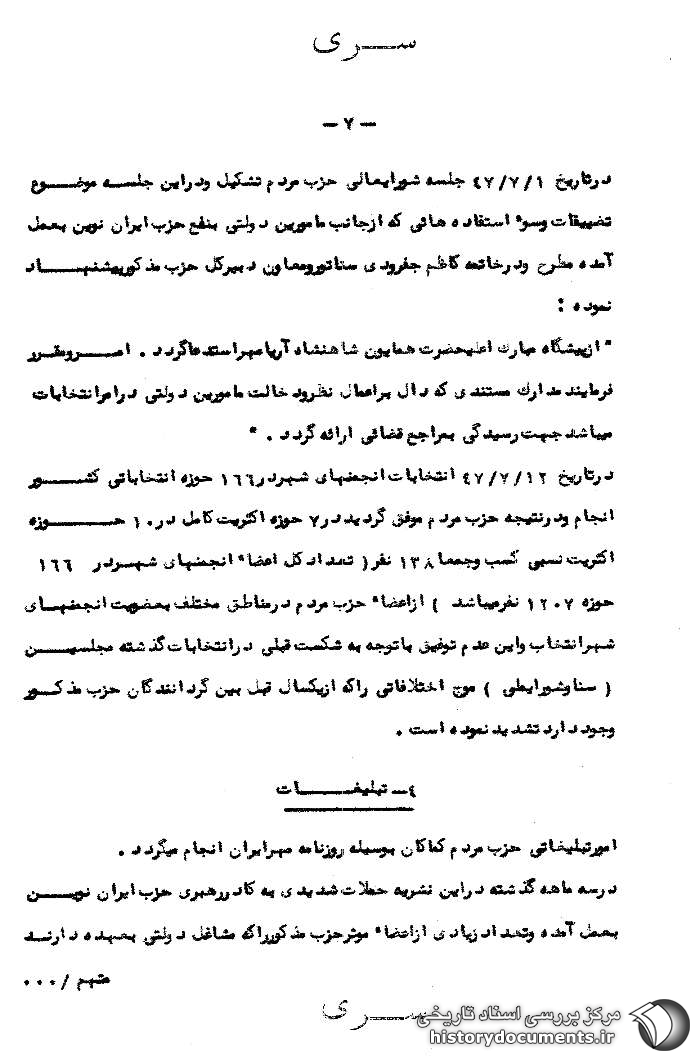 ســـری
- ۷ -
درتاریخ ۴۷/۷/۱ جلسه شورایعالی حزب مردم تشکیل ودراین جلسـه موضـوع
تضییقات وسوء استفاده هائی که ازجانب مامورین دولتی بنفع حزب ایران نوین بعمل
آمده مطرح ودرخاتمه کاظم جفرودی سناتورومعاون دبیرکل حزب مذکورپیشنهـاد
نموده :
" ازپیشگاه مبارک اعلیحضرت همایون شاهنشاه آریامهراستدعاگردد . امـرومقرر
فرمایند مدارک مستندی که دال براعمال نظرودخالت مامورین دولتی درامرانتخابات
میباشد جهت رسیدگی بمراجع قضائی ارائه گردد . "
درتاریخ ۴۷/۷/۱۲ انتخابات انجمنهای شهردر۱۶۶ حوزه انتخاباتی کشـور
انجام ودرنتیجه حزب مردم موفق گردید در۷ حوزه اکثریت کامل در۱۰ حـوزه
اکثریت نسبی کسب وجمعا۱۳۸ نفر( تعداد کل اعضاء انجمنهای شهـردر ۱۶۶
حوزه ۱۲۰۷ نفرمیباشد ) ازاعضاء حزب مردم درمناطق مختلف بعضویت انجمنهـای
شهرانتخاب واین عدم توفیق باتوجه به شکست قبلی درانتخابات گذشته مجلسیـن
( سناوشورایملی ) موج اختلافاتی راکه ازیکسال قبل بین گردانندگان حزب مذکـور
وجود دارد تشدید نموده است .
۴ــ تبلیغـــات
امورتبلیغاتی حزب مردم کماکان بوسیله روزنامه مهرایران انجام میگردد .
درسه ماهه گذشته دراین نشریه حملات شدیدی به کادررهبری حزب ایران نویـن
بعمل آمده وتعداد زیادی ازاعضاء موثرحزب مذکورراکه مشاغل دولتی بعهده دارنـد
متهم /۰۰۰
ســـری
مرکز بررسی اسناد تاریخی
historydocuments.ir